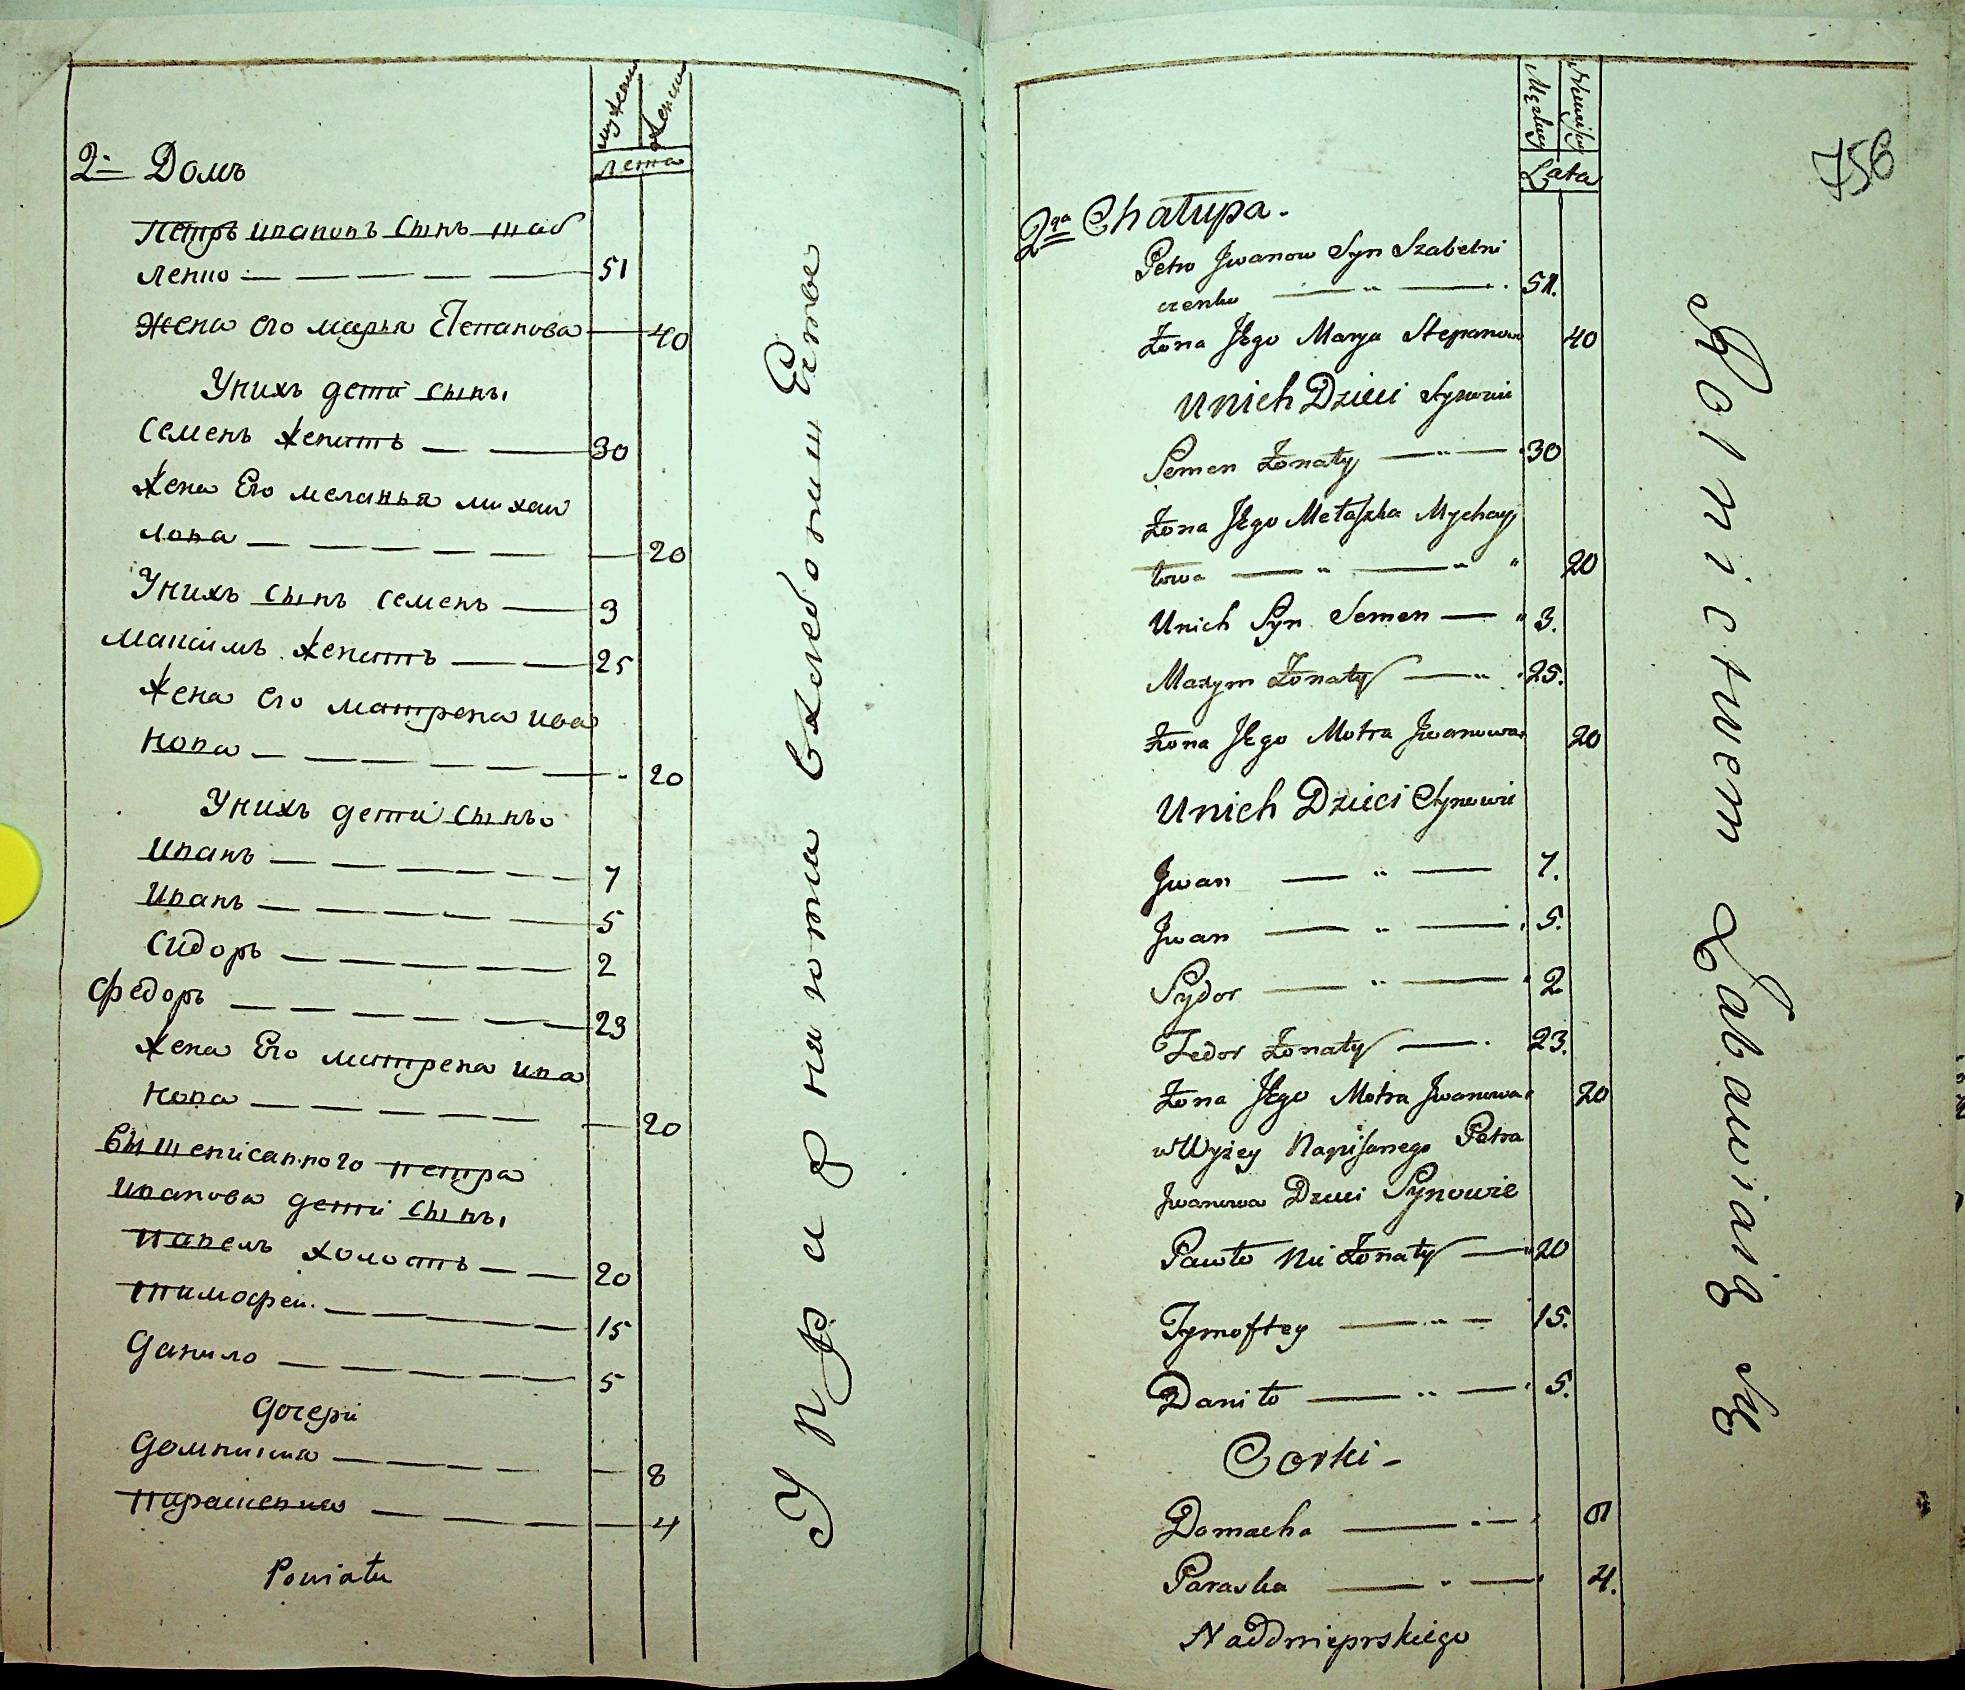 мужеска
женска
лета
2й Домъ
Петръ ивановъ сынъ шаб
ленко 51
жена его марья Степанова 40
Унихъ дети сынъı
семенъ женатъ 30
жена Его меланья михаи
лова 20
Унихъ сынъ семенъ 3
максимъ женатъ 25
жена его матрена ива
нова 20
Унихъ дети сынъı
иванъ 7
иванъ 5
сидоръ 2
федоръ 23
жена Его матрена ива
нова 20
вышеписанного петра
иванова дети сынъı
павелъ холостъ 20
тимофеи 15
данило 5
дочери
домникия 8
парасковия 4
Powiatu
Упражняюта вхлебопашестве
Męzkey
Niewiескiey
Lata
758
2ga Chałupa.
Petro Jwanow Syn Szabelni
czenko 51.
Żona Jego Marya Stepanowa 40
Unich Dzieci Synowie
Semen Żonaty 30
Żona Jego Metaszka Mychay
łowa 20
Unich Syn Semen 3.
Maxym Żonaty 25.
Żona Jego Motra Jwanowa 20
Unich Dzieci Synowie
Jwan 7.
Jwan 5.
Sydor 2
Fedor Żonaty 23.
Żona Jego Motra Jwanowa 20
wWyżey Napisanego Petra
Jwanowa Dzieci Synowie
Pawło Nie Żonaty 20
Tymoftey 15.
Daniło 5.
Corki -
Domacha 8
Paraska 4.
Naddnieprskiego
Rolnictwem Zabawiaią się